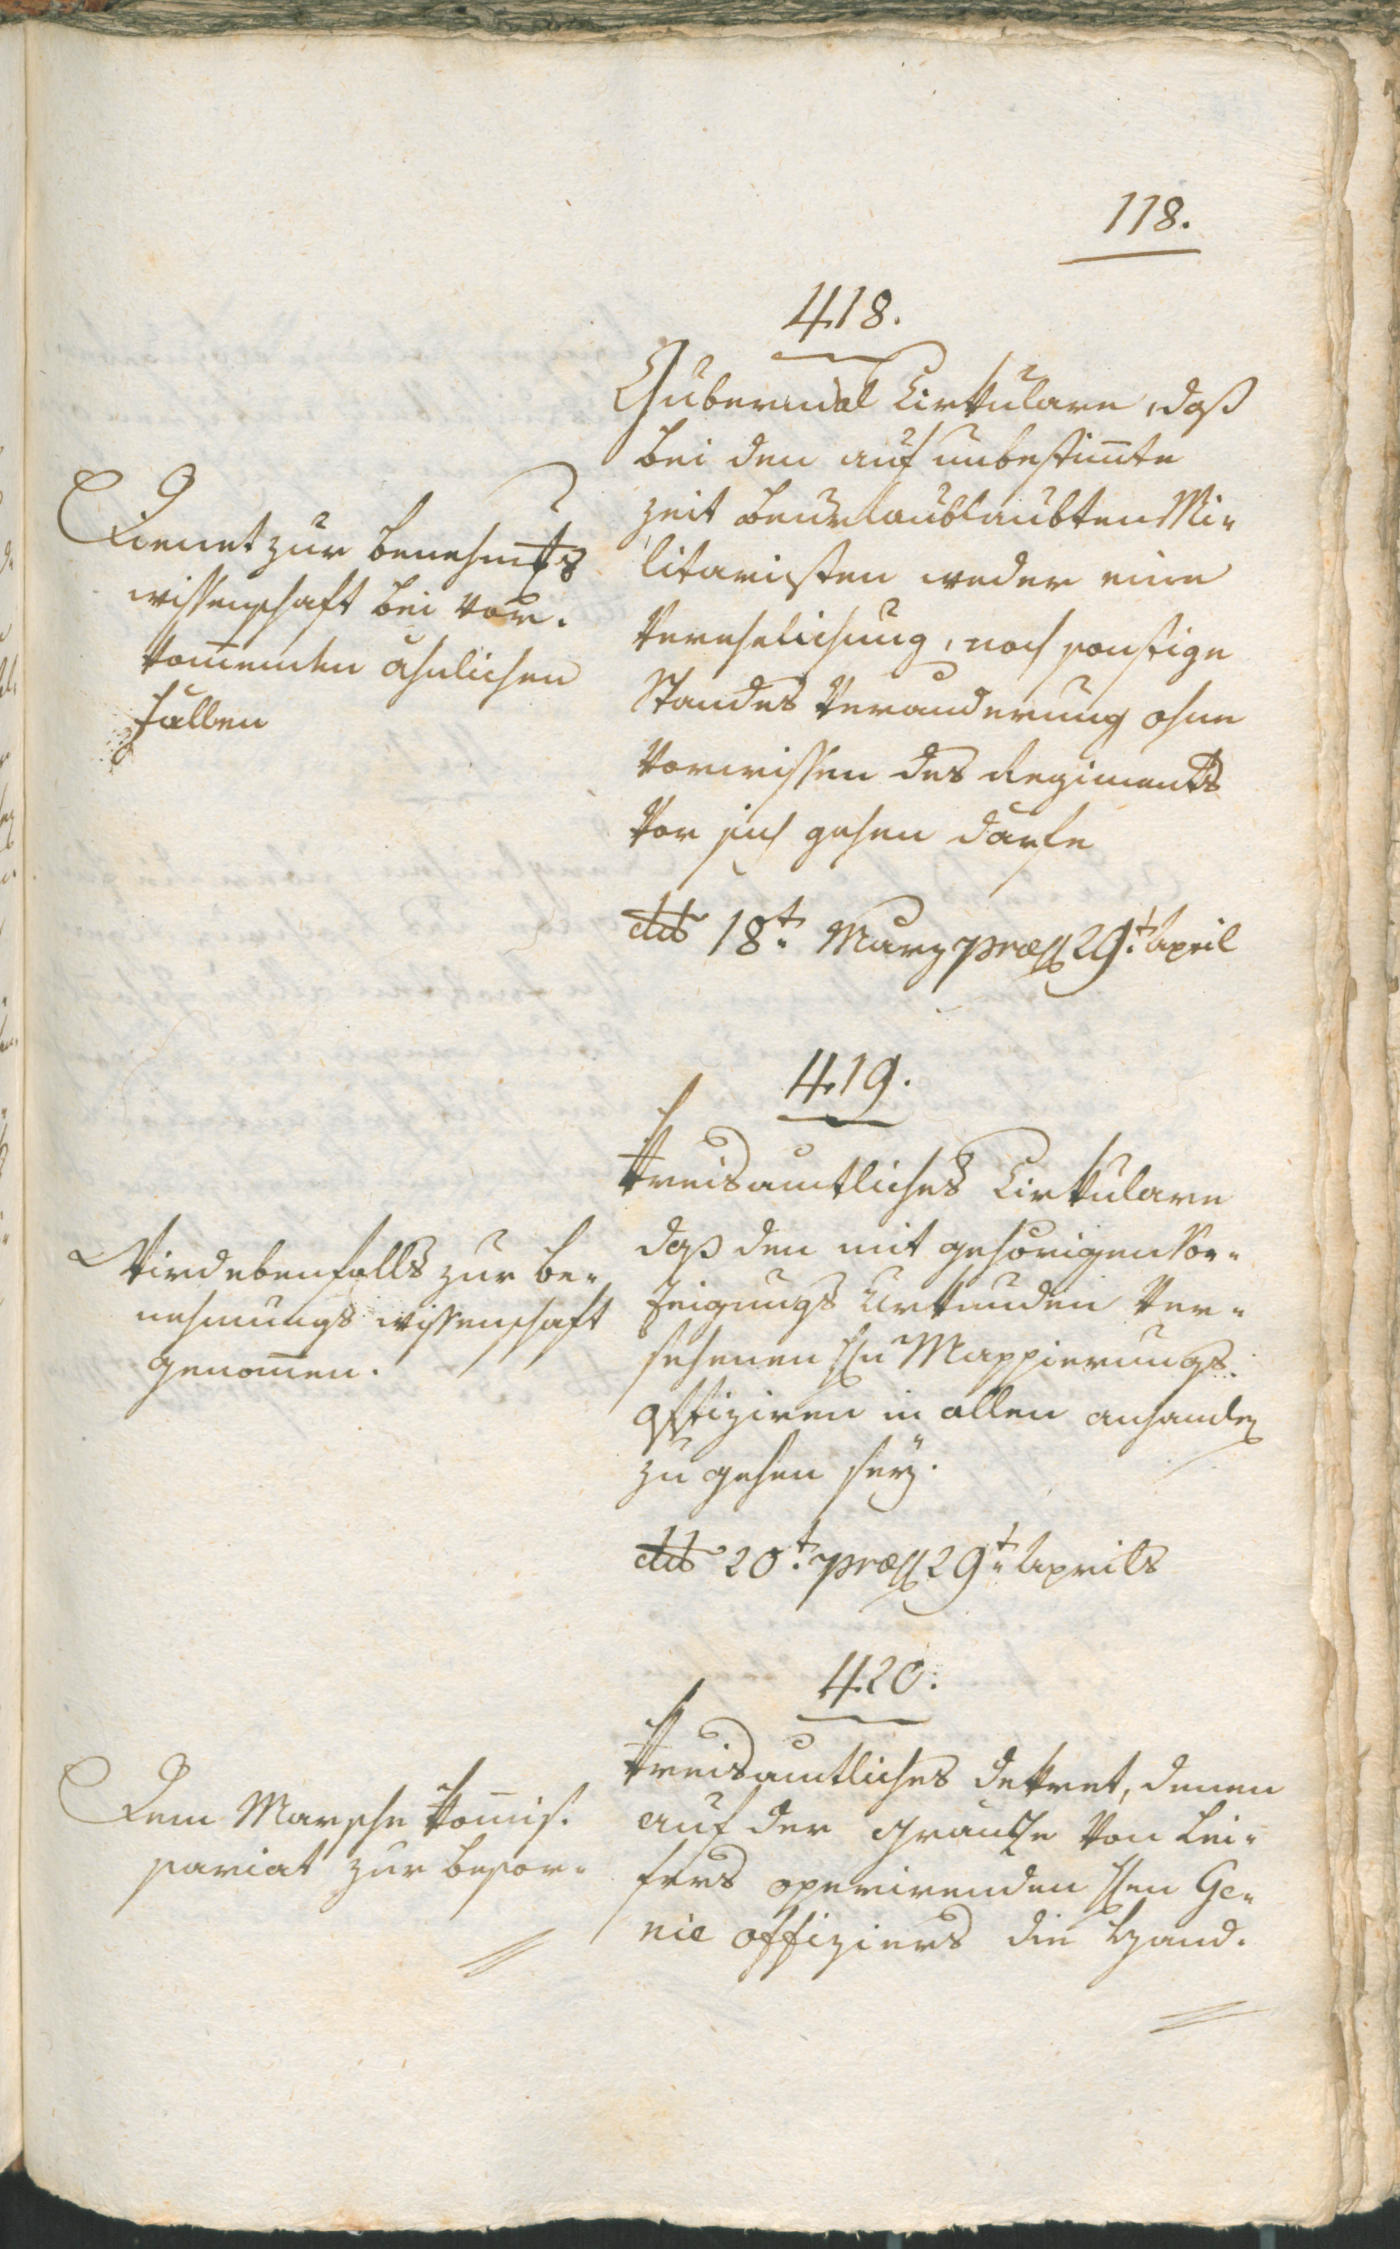 118.
418.
Gubernial Cirkulare, daß
bei den auf unbestim̄te
zeit beurlaublaubten Mi-
litaristen weder eine
Verehelichung, noch sonstige
Standes Veranderung ohne
Vorwissen des Regiments
Vor sich gehen darfe
dto 18t. Marz præs 29t. April
Dienet zur benehmgs
wissenschaft bei vor-
kom̄enden ähnlichen
fällen
419.
Kreisamtliches Cirkulare
daß den mit gehörigen Vor-
zeigungs Urkunden Ver-
sehenen Hn Mappierungs-
offiziren in allen anhanden
zu gehen seÿ.
dto 20t. præs 29t. Aprils
Wird ebenfalls zur be-
nehmungs wissenschaft
genom̄en.
420.
Kreisamtliches dekret, denen
auf der Gränze Von Lei-
fers operirenden Hen Ge-
nie offiziers die Hand-
Dem Marsche Kom̄is-
sariat zur besor-